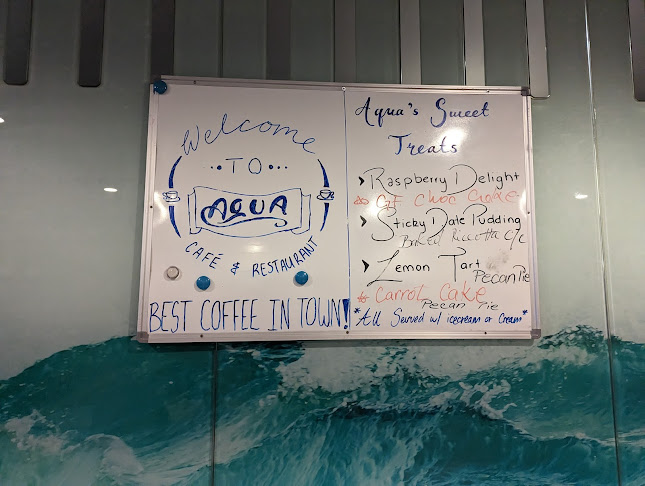 Welcome
• TO •••
AQUA
CAFÉ & RESTAURANT
BEST COFFEE IN TOWN!
Aqua's Sweet
Treats
> Raspberry Delight
GF Choc Cake
> Sticky Date Pudding
Baked Ricotta C/C
> Lemon Tart
Pecan Pie
Carrot Cake
Pecan Pie
*All Served w/ icecream or Cream*